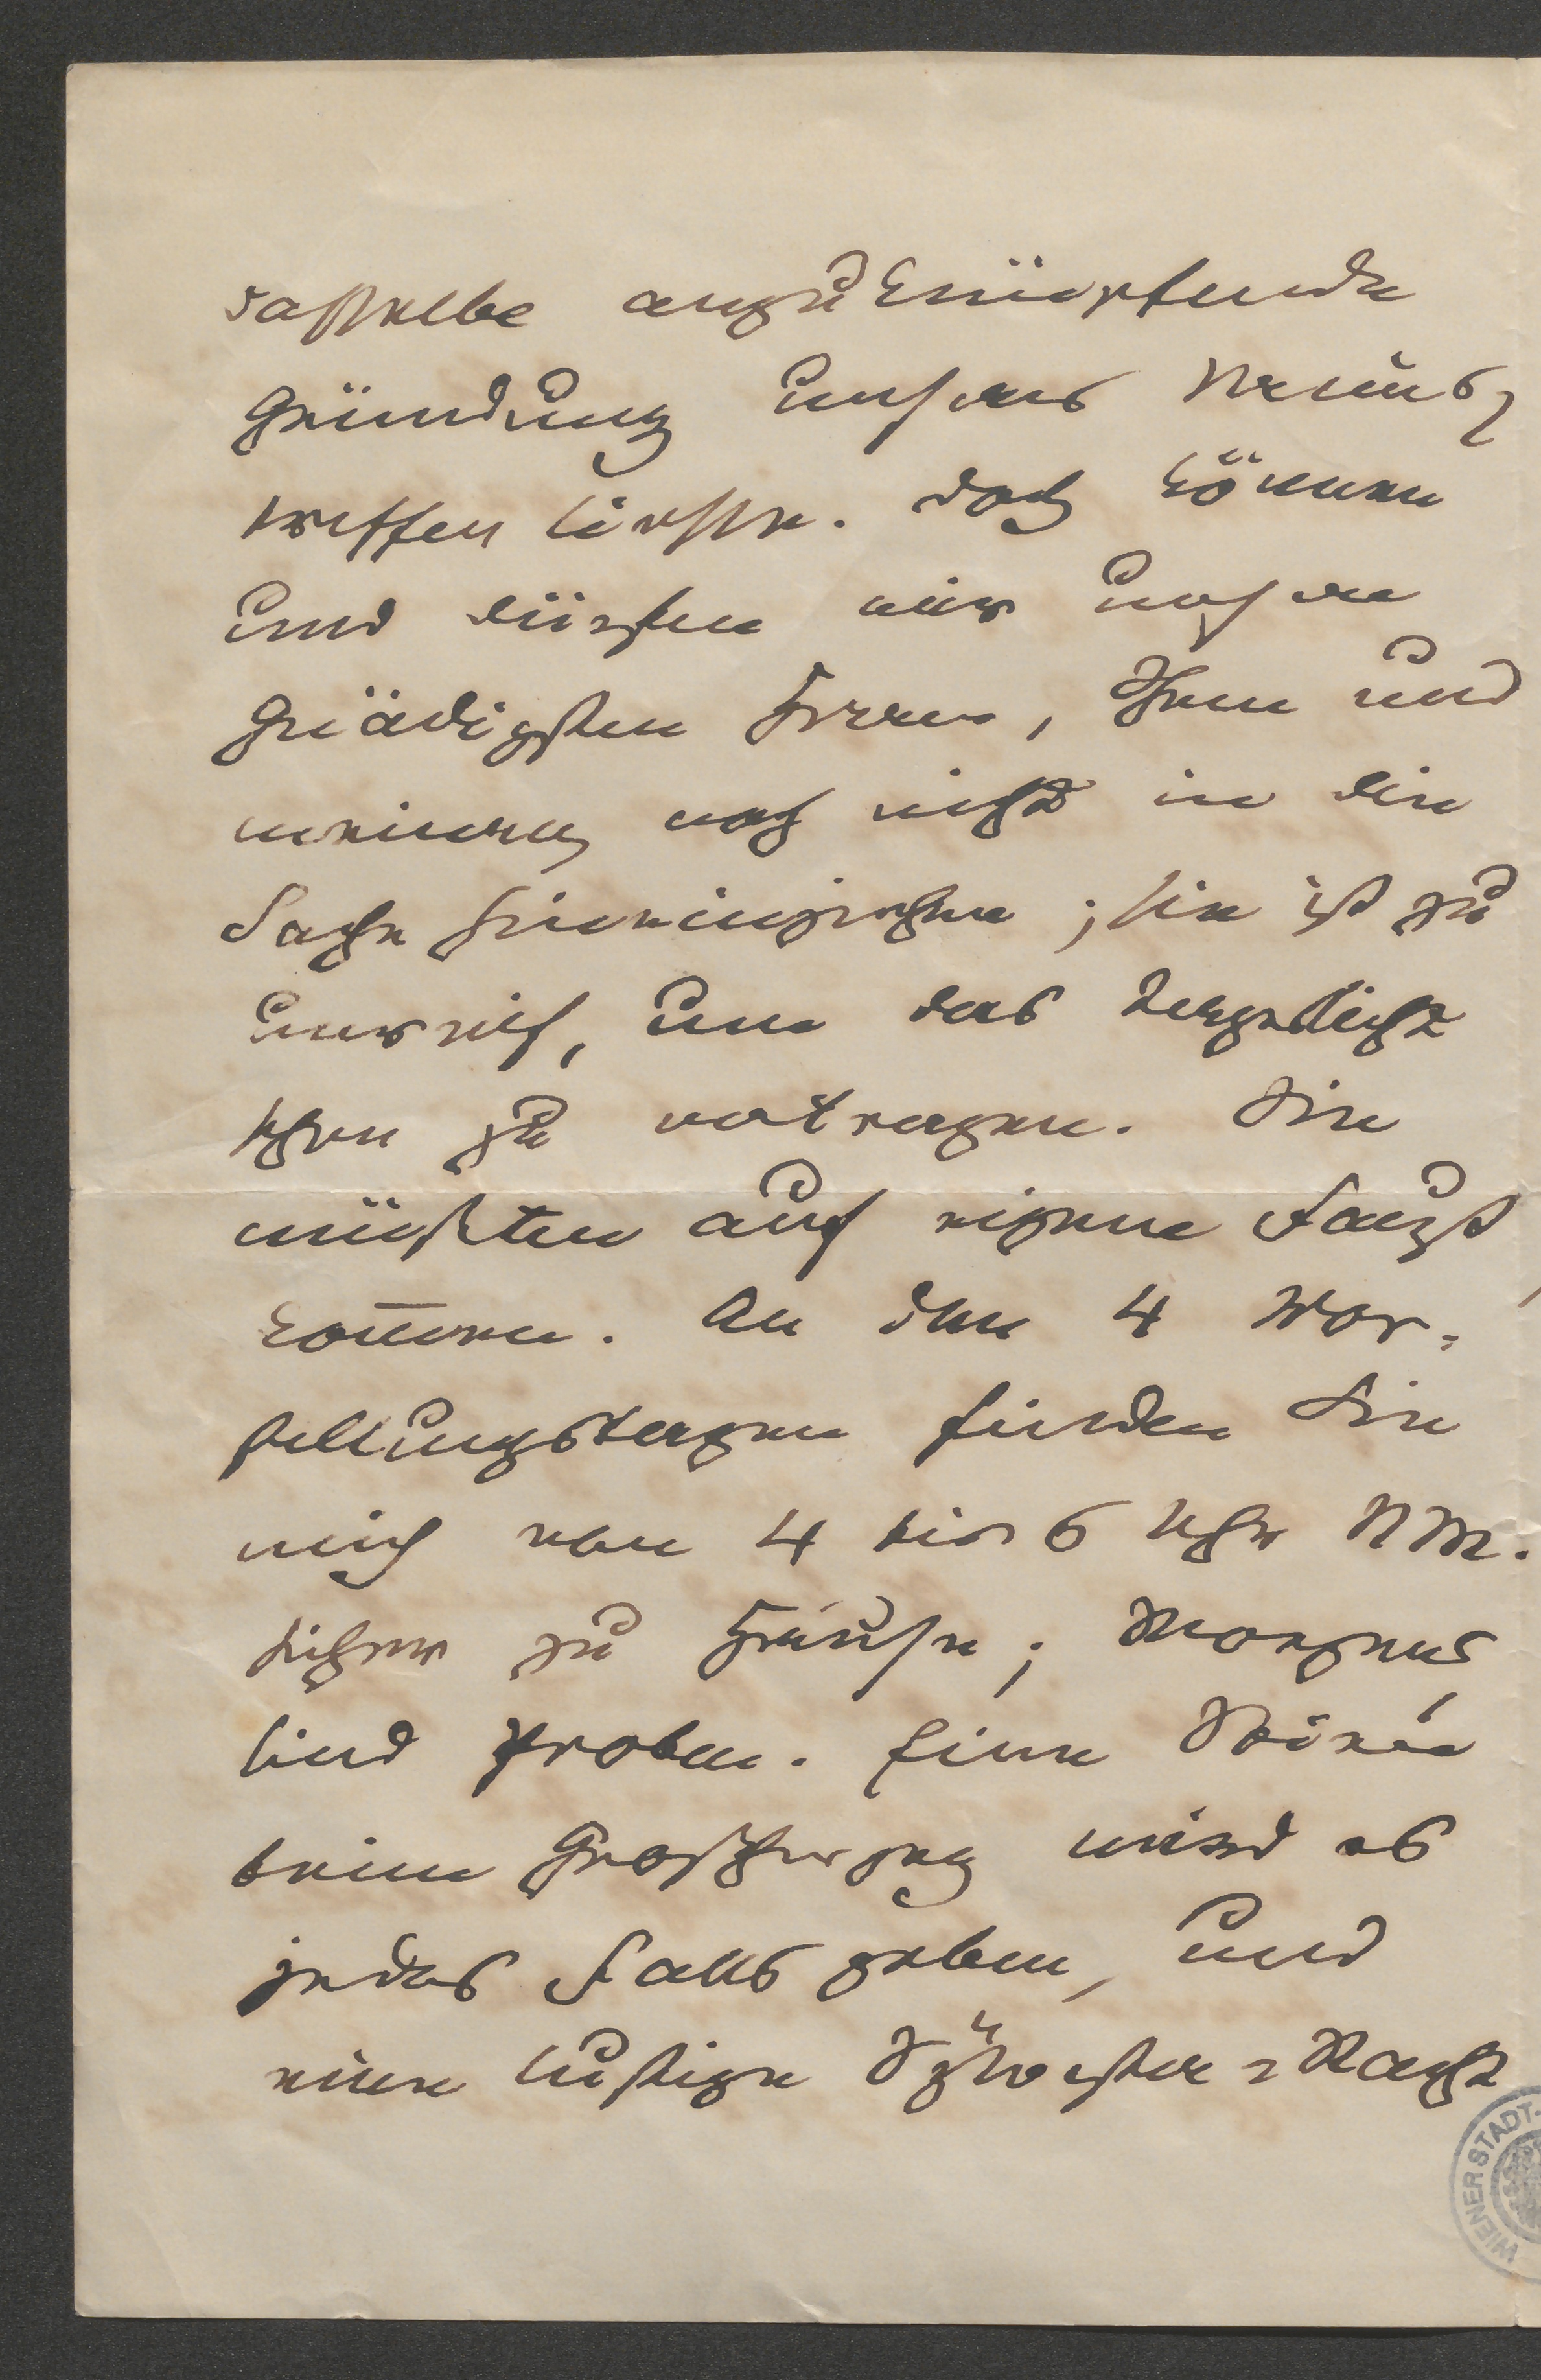 dasselbe anzuknüpfende
Gründung unseres Vereins
treffen ließe. Doch können
und dürfen wir unsern
gnädigsten Herrn, Ihnen und
meinen noch nicht in die
Sache hineinziehen; sie ist zu
unreif, um das Tageslicht
schon zu vertragen. Sie
müßten auf eigene Faust
kom̅en. An den 4 Vor=
stellungstagen finden Sie
mich von 4 bis 6 Uhr NM.
sicher zu Hause; Morgens
sind Proben. Eine Soirée
beim Großherzog wird es
jedes Falls geben, und
eine lustige Sylvester=Nacht
WIENER STADT-